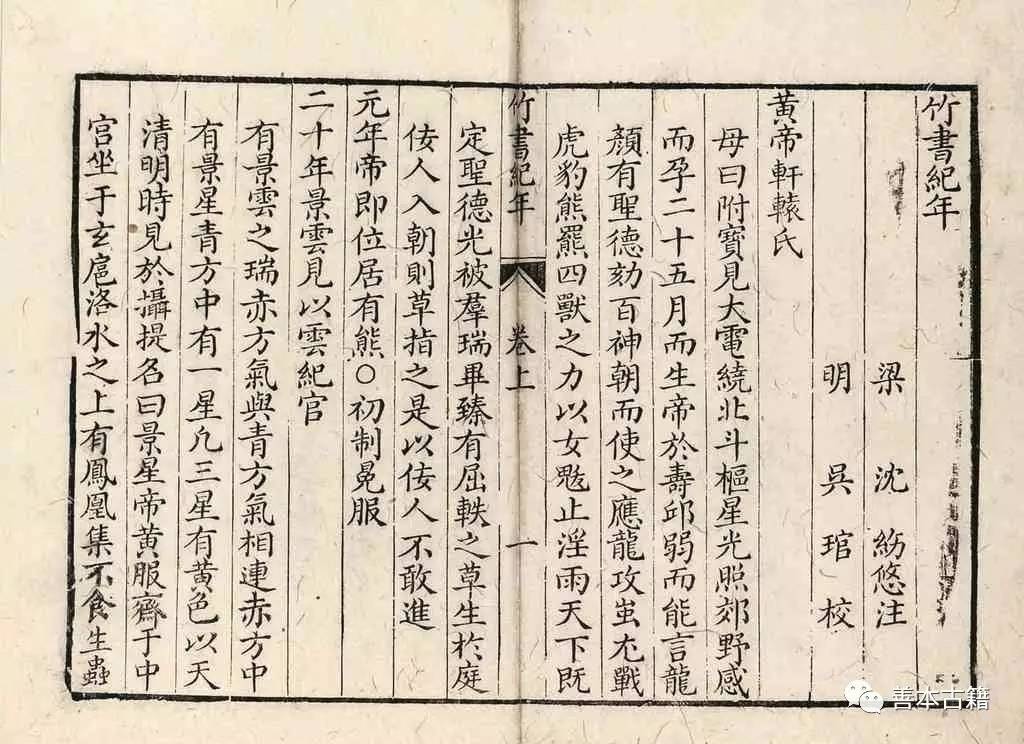 竹書紀年
梁 沈 約 悠注
明 吳 琯 校
黃帝軒轅氏
母曰附寶見大電繞北斗樞星光照郊野感
而孕二十五月而生帝於壽邱弱而能言龍
顏有聖德劾百神朝而使之應龍攻蚩尤戰
虎豹熊羆四獸之力以女魃止淫雨天下既
竹書紀年 卷上 一
定聖德光被羣瑞畢臻有屈軼之草生於庭
佞人入朝則草指之是以佞人不敢進
元年帝即位居有熊○初制冕服
二十年景雲見以雲紀官
有景雲之瑞赤方氣與青方氣相連赤方中
有景星青方中有一星凡三星有黃色以天
清明時見於攝提名曰景星帝黃服齋于中
宮坐于玄扈洛水之上有鳳凰集不食生蟲
善本古籍